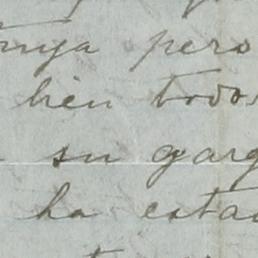 pero
bien todos
su garg
ha esta